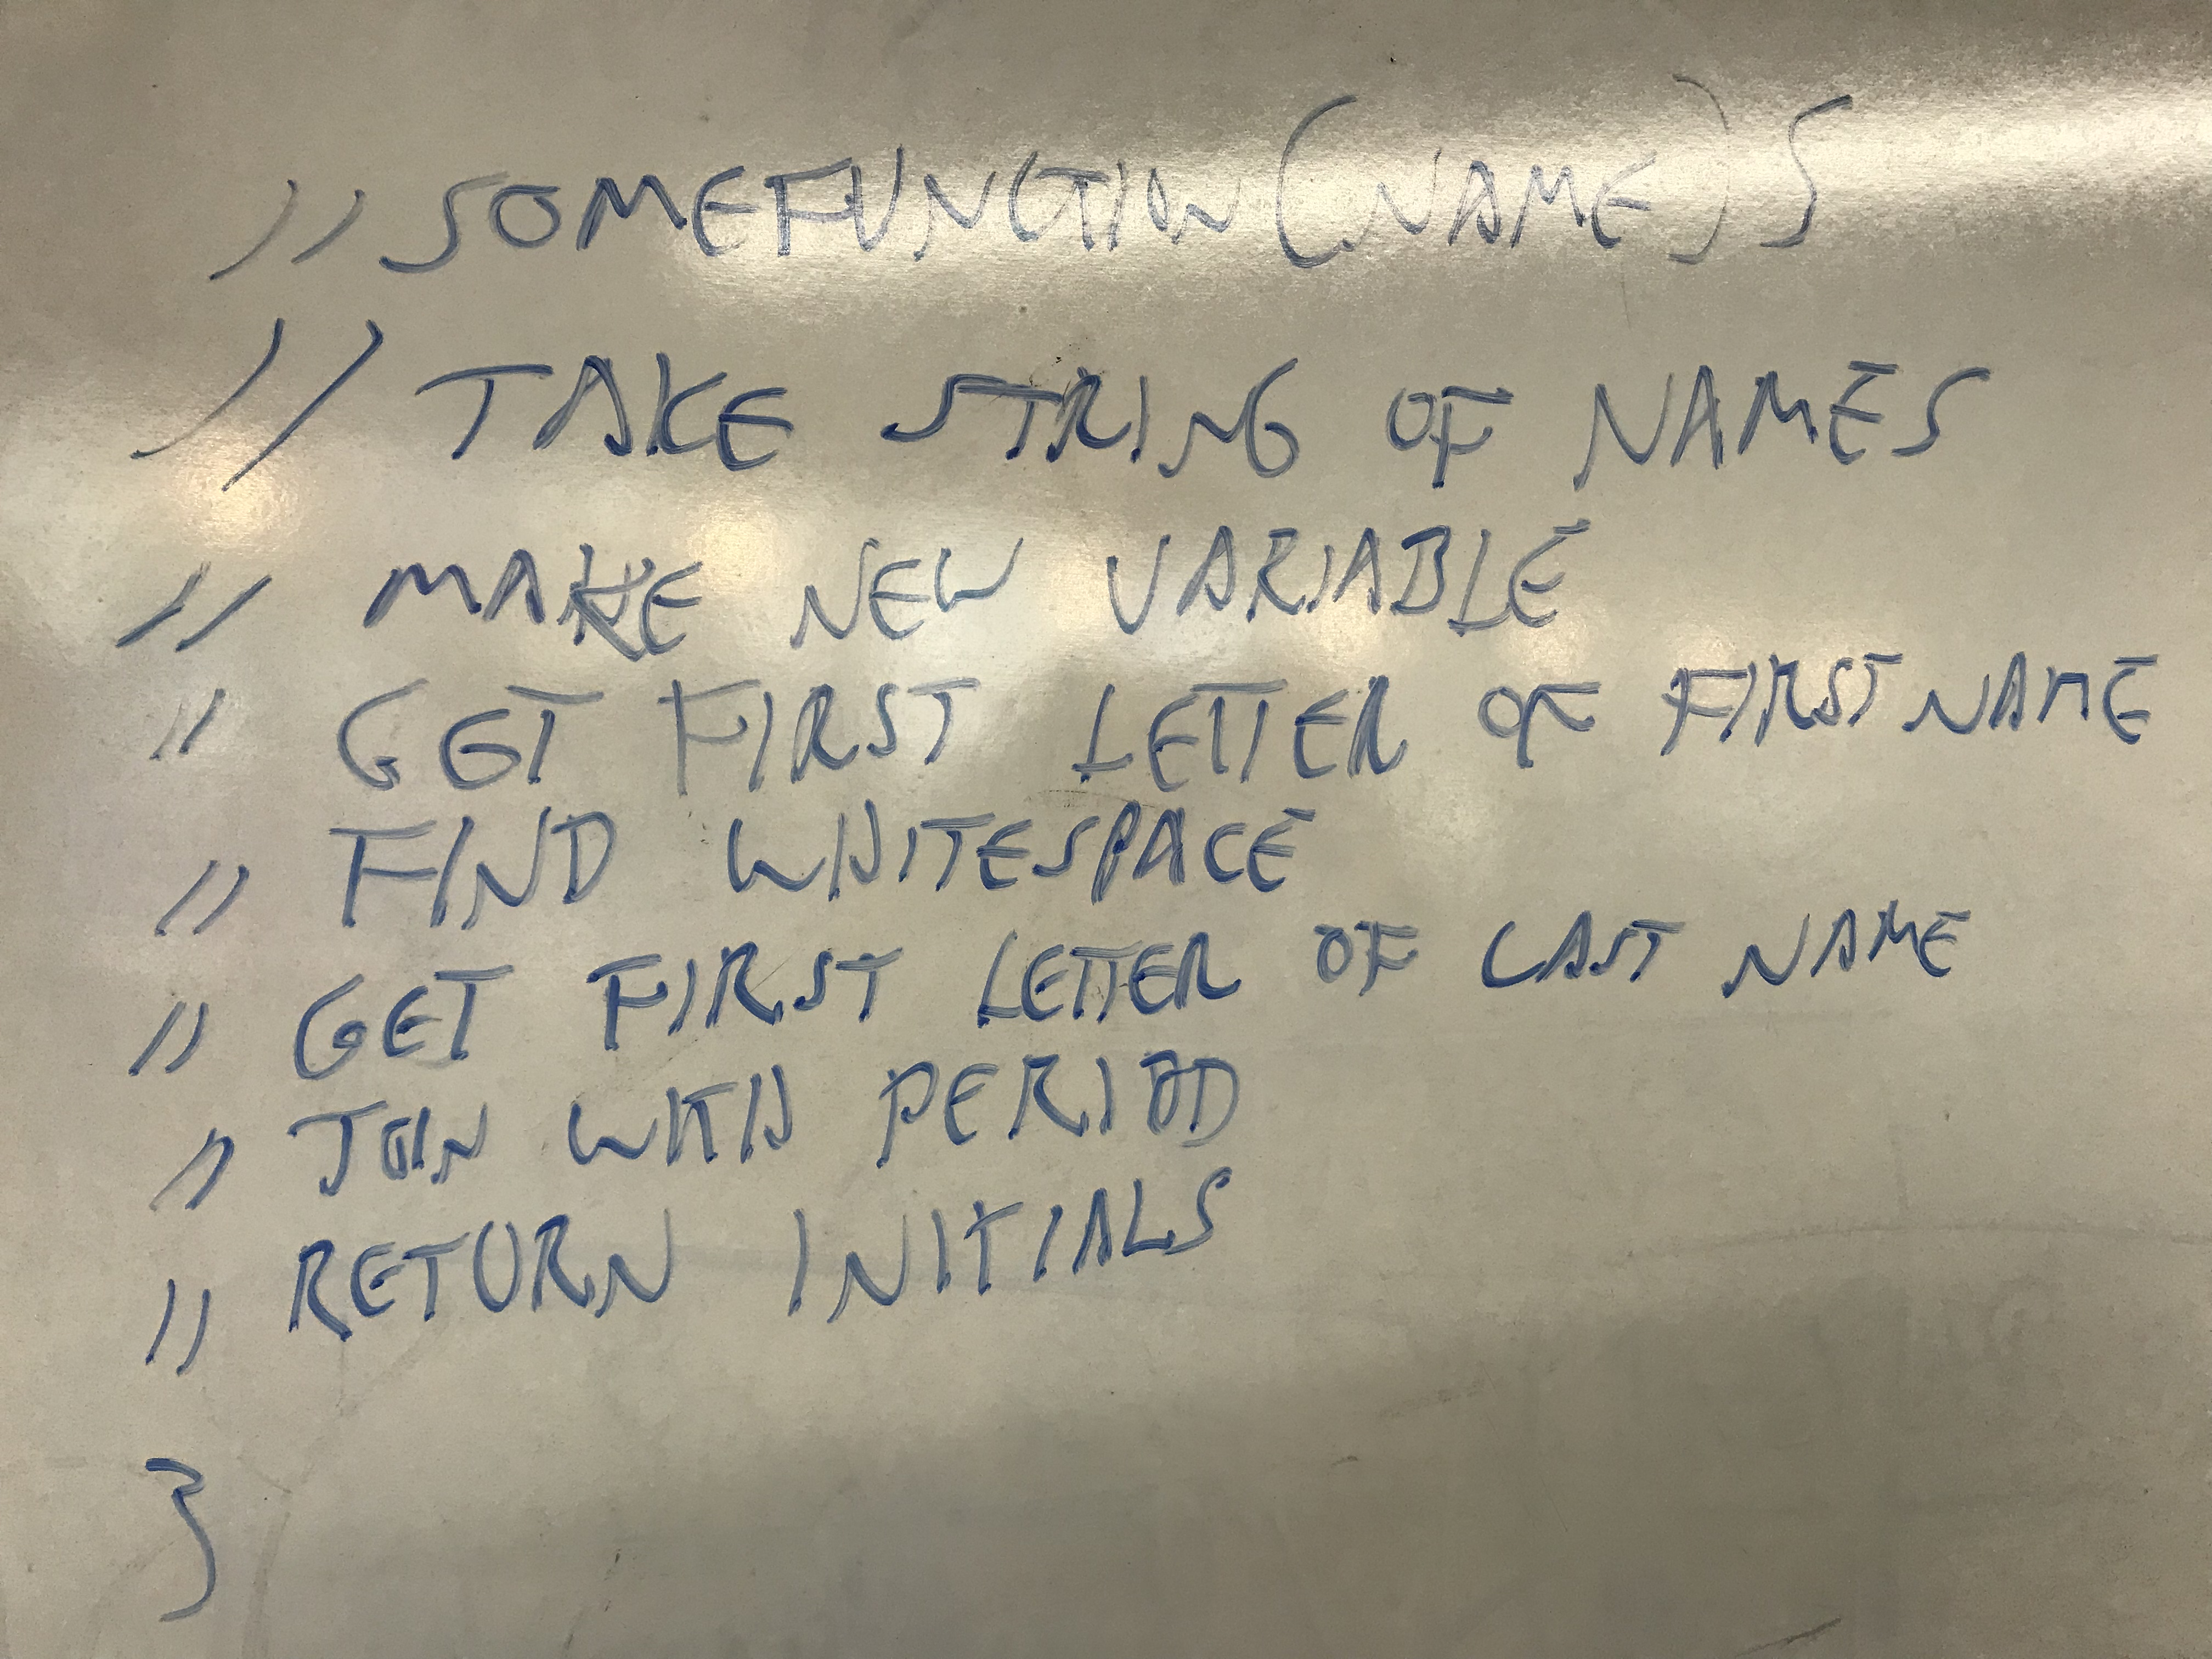 // SOMEFUNCTION(NAME){
// TAKE STRING OF NAMES
// MAKE NEW VARIABLE
// GET FIRST LETTER OF FIRST NAME
// FIND WHITESPACE
// GET FIRST LETTER OF LAST NAME
// JOIN WITH PERIOD
// RETURN INITIALS
}